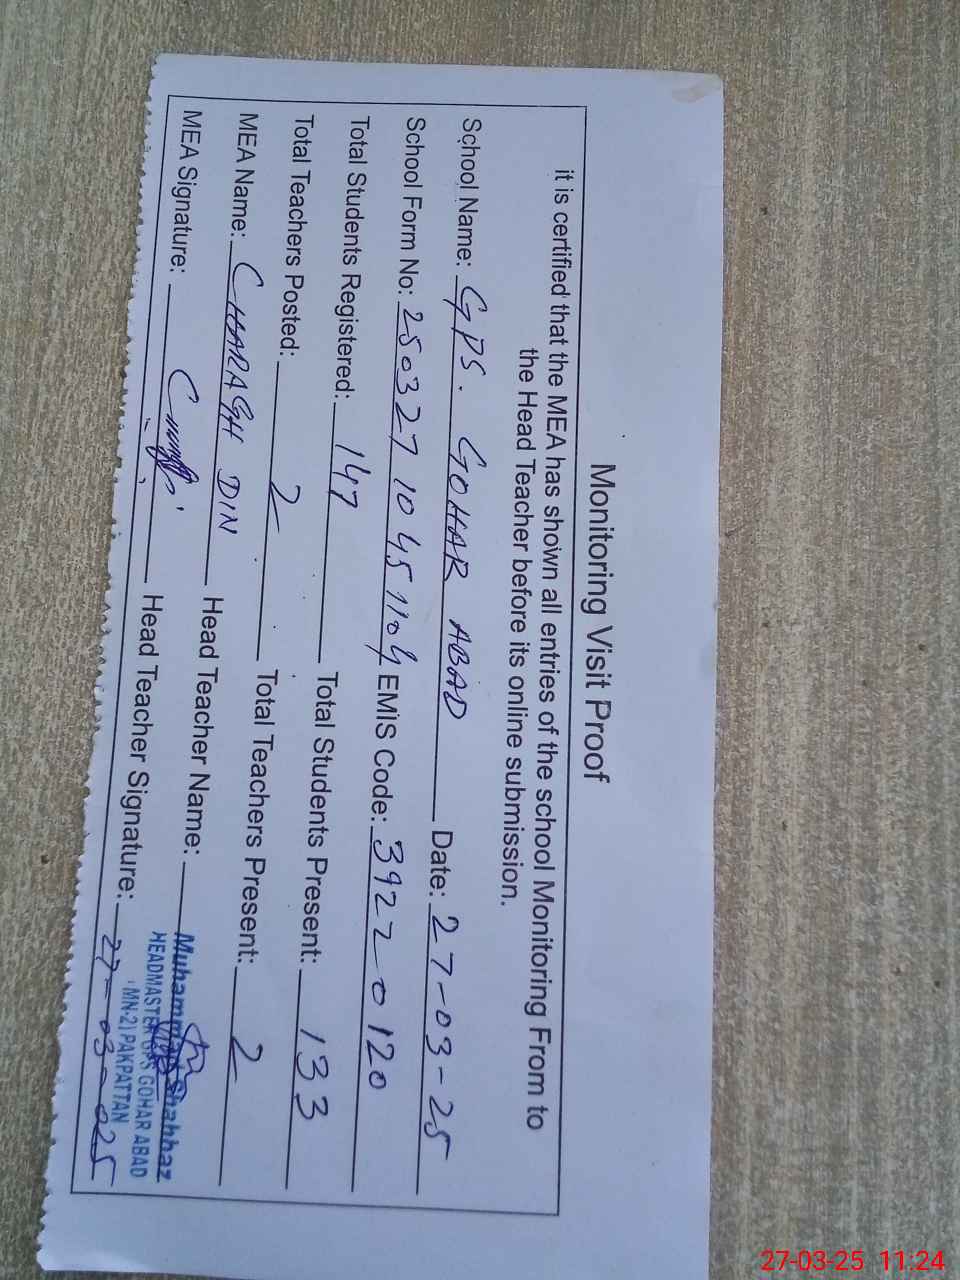 Monitoring Visit Proof
it is certified that the MEA has shown all entries of the school Monitoring From to
the Head Teacher before its online submission.
School Name: GPS. GOHAR ABAD Date: 27-03-25
School Form No: 250327 10451104 EMIS Code: 39220120
Total Students Registered: 147 Total Students Present: 133
Total Teachers Posted: 2 Total Teachers Present: 2
MEA Name: CHARAGH DIN Head Teacher Name:
MEA Signature: Head Teacher Signature:
Muhammad Shahbaz
HEADMASTER GPS GOHAR ABAD
(MN-2) PAKPATTAN
27-03-025
27-03-25 11:24